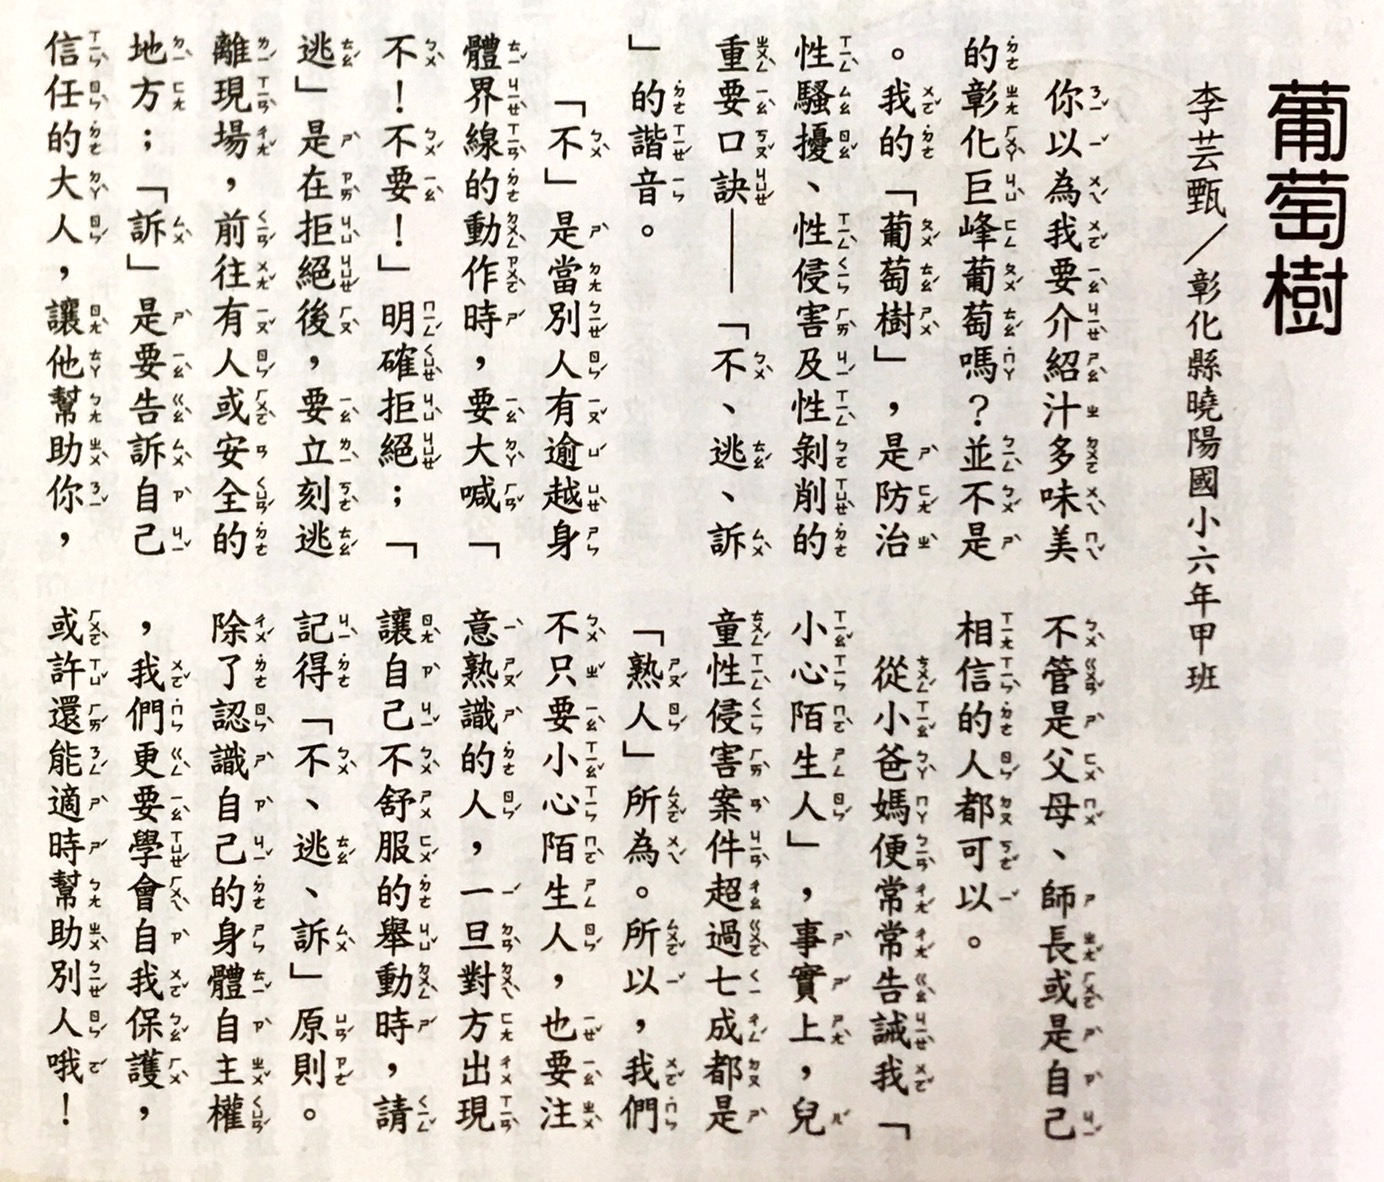 葡萄樹
李芸甄／彰化縣曉陽國小六年甲班
你以為我要介紹汁多味美
的彰化巨峰葡萄嗎？並不是
。我的「葡萄樹」，是防治
性騷擾、性侵害及性剝削的
重要口訣——「不、逃、訴
」的諧音。
「不」是當別人有逾越身
體界線的動作時，要大喊「
不！不要！」明確拒絕；「
逃」是在拒絕後，要立刻逃
離現場，前往有人或安全的
地方；「訴」是要告訴自己
信任的大人，讓他幫助你，
不管是父母、師長或是自己
相信的人都可以。
從小爸媽便常常告誡我「
小心陌生人」，事實上，兒
童性侵害案件超過七成都是
「熟人」所為。所以，我們
不只要小心陌生人，也要注
意熟識的人，一旦對方出現
讓自己不舒服的舉動時，請
記得「不、逃、訴」原則。
除了認識自己的身體自主權
，我們更要學會自我保護，
或許還能適時幫助別人哦！